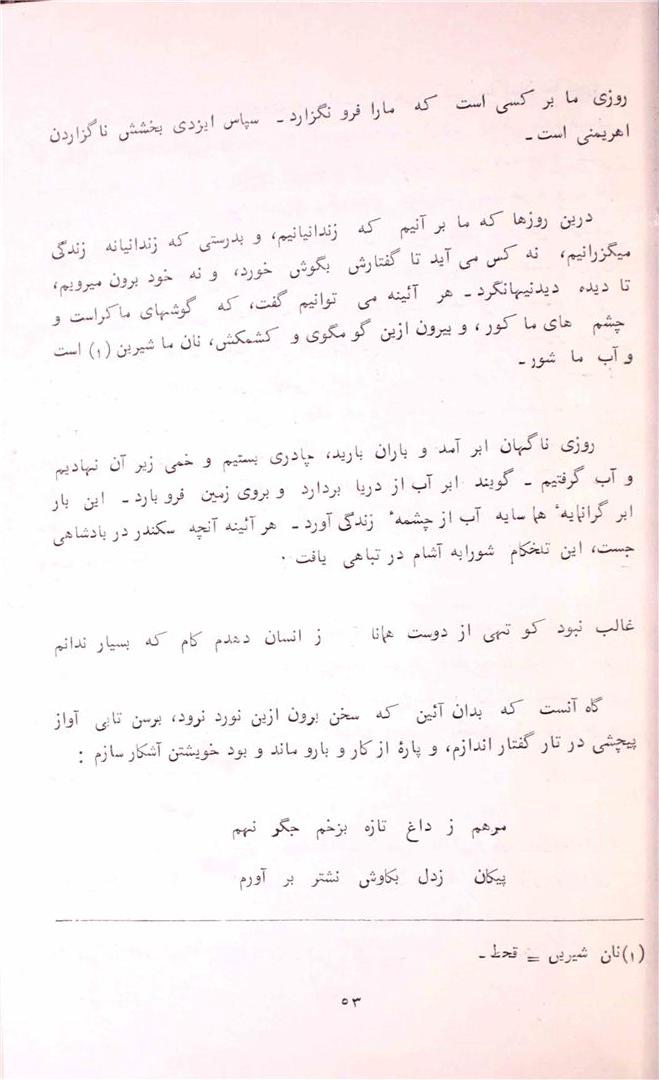 روزی ما بر کسی است که مارا فرو نگزارد ـ سپاس ایزدی بخشش ناگزاردن
اهریمنی است ـ
درین روزها که ما بر آنیم که زندانیانیم، و بدرستی که زندانیانه زندگی
میگزرانیم، نه کس می آید تا گفتارش بگوش خورد، و نه خود برون میرویم،
تا دیده دیدنیهانگرد ـ هر آئینه می توانیم گفت، که گوشهای ماکراست و
چشم های ما کور، و بیرون ازین گو مگوی و کشمکش، نان ما شیرین (۱) است
و آب ما شور ـ
روزی ناگهان ابر آمد و باران بارید، چادری بستیم و خمی زیر آن نهادیم
و آب گرفتیم ـ گویند ابر آب از دریا بردارد و بروی زمین فرو بارد ـ این بار
ابر گرانمایهٔ هما سایه آب از چشمهٔ زندگی آورد ـ هر آئینه آنچه سکندر در بادشاهی
جست، این تلخکام شورابه آشام در تباهی یافت ۰
غالب نبود کو تهی از دوست همانا ز انسان دهدم کام که بسیار ندانم
گاه آنست که بدان آئین که سخن برون ازین نورد نرود، برسن تابی آواز
پیچشی در تار گفتار اندازم، و پارهٔ از کار و بارو ماند و بود خویشتن آشکار سازم :
مرهم ز داغ تازه بزخم جگر نهم
پیکان زدل بکاوش نشتر بر آورم
(۱) نان شیریں = قحط ـ
۵۳